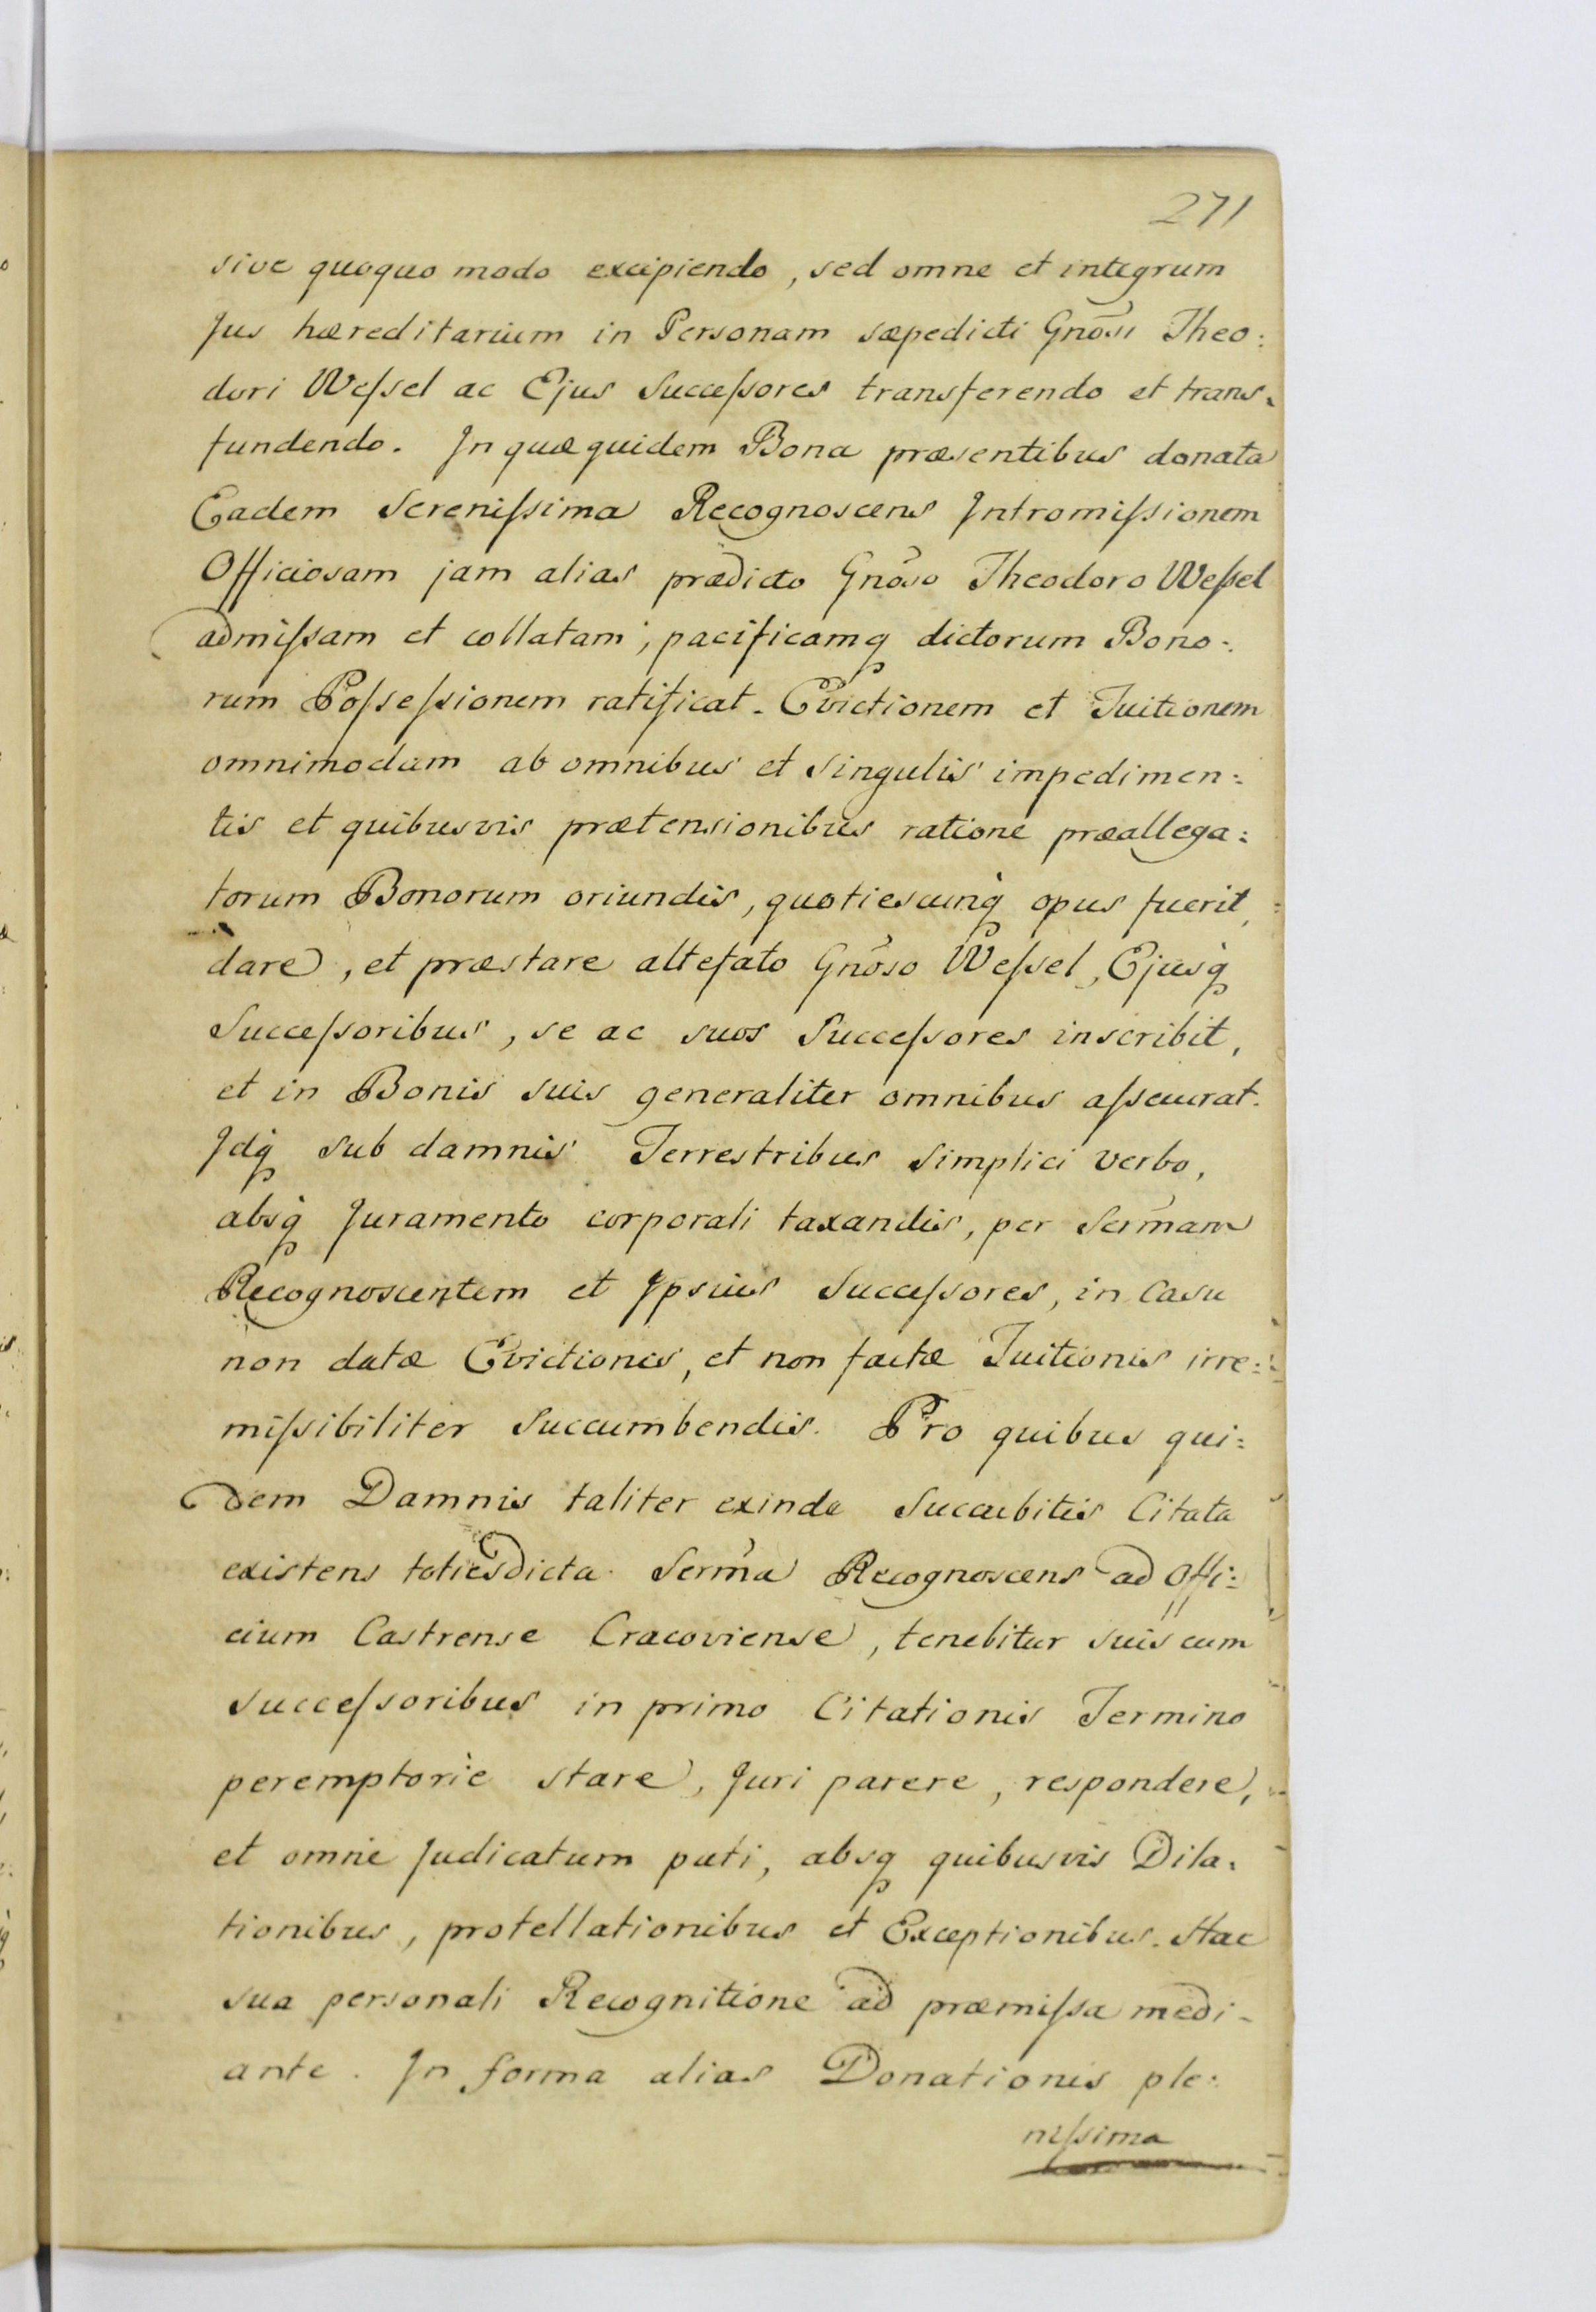 271
sive quoquo modo excipiendo, sed omne et integrum
Jus hæreditarium in Personam sæpedicti Gnõsi Theo:
dori Weſsel ac Ejus Succeſsores transferendo et trans:
fundendo. In quæ quidem Bona præsentibus donata
Eadem Sereniſsima Recognoscens Intromiſsionem
Officiosam jam alias prædicto Gnõso Theodoro Weſsel
admiſsam et collatam, pacificamq dictorum Bono:
rum Poſseſsionem ratificat. Evictionem et Tuitionem
omnimodam ab omnibus et singulis impedimen:
tis et quibusvis prætensionibus ratione præallega:
torum Bonorum oriundis, quotiescunq opus fuerit,
dare, et præstare altefato Gnõso Weſsel, Ejusq
Succeſsoribus, se ac suos Succeſsores inscribit,
et in Bonis suis generaliter omnibus aſsecurat.
Idq sub damnis Terrestribus simplici verbo,
absq Juramento corporali taxandis, per Serm̃am
Recognoscentem et Ipsius Succeſsores, in Casu
non datæ Evictionis, et non factæ Tuitionis irre:
miſsibiliter succumbendis. Pro quibus qui:
dem Damnis taliter exinde Succubitis Citata
existens totiesdicta Serm̃a Recognoscens ad Offi:
cium Castrense Cracoviense, tenebitur suis cum
succeſsoribus in primo Citationis Termino
peremptoriè stare, Juri parere, respondere,
et omne Judicatum pati, absq quibusvis Dila:
tionibus, protellationibus et Exceptionibus. Hac
sua personali Recognitione ad præmiſsa medi-
ante. In forma alias Donationis ple:
niſsima